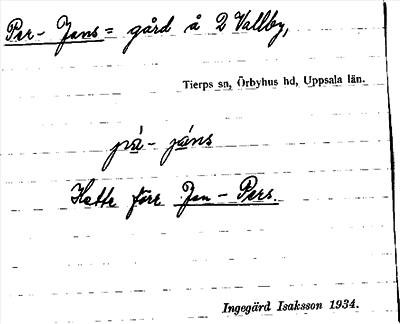 Per-Jans = gård å 2 Vallby,
Tierps sn, Örbyhus hd, Uppsala län.
pá - jáns
Hette förr Jan - Pers.
Ingegärd Isaksson 1934.